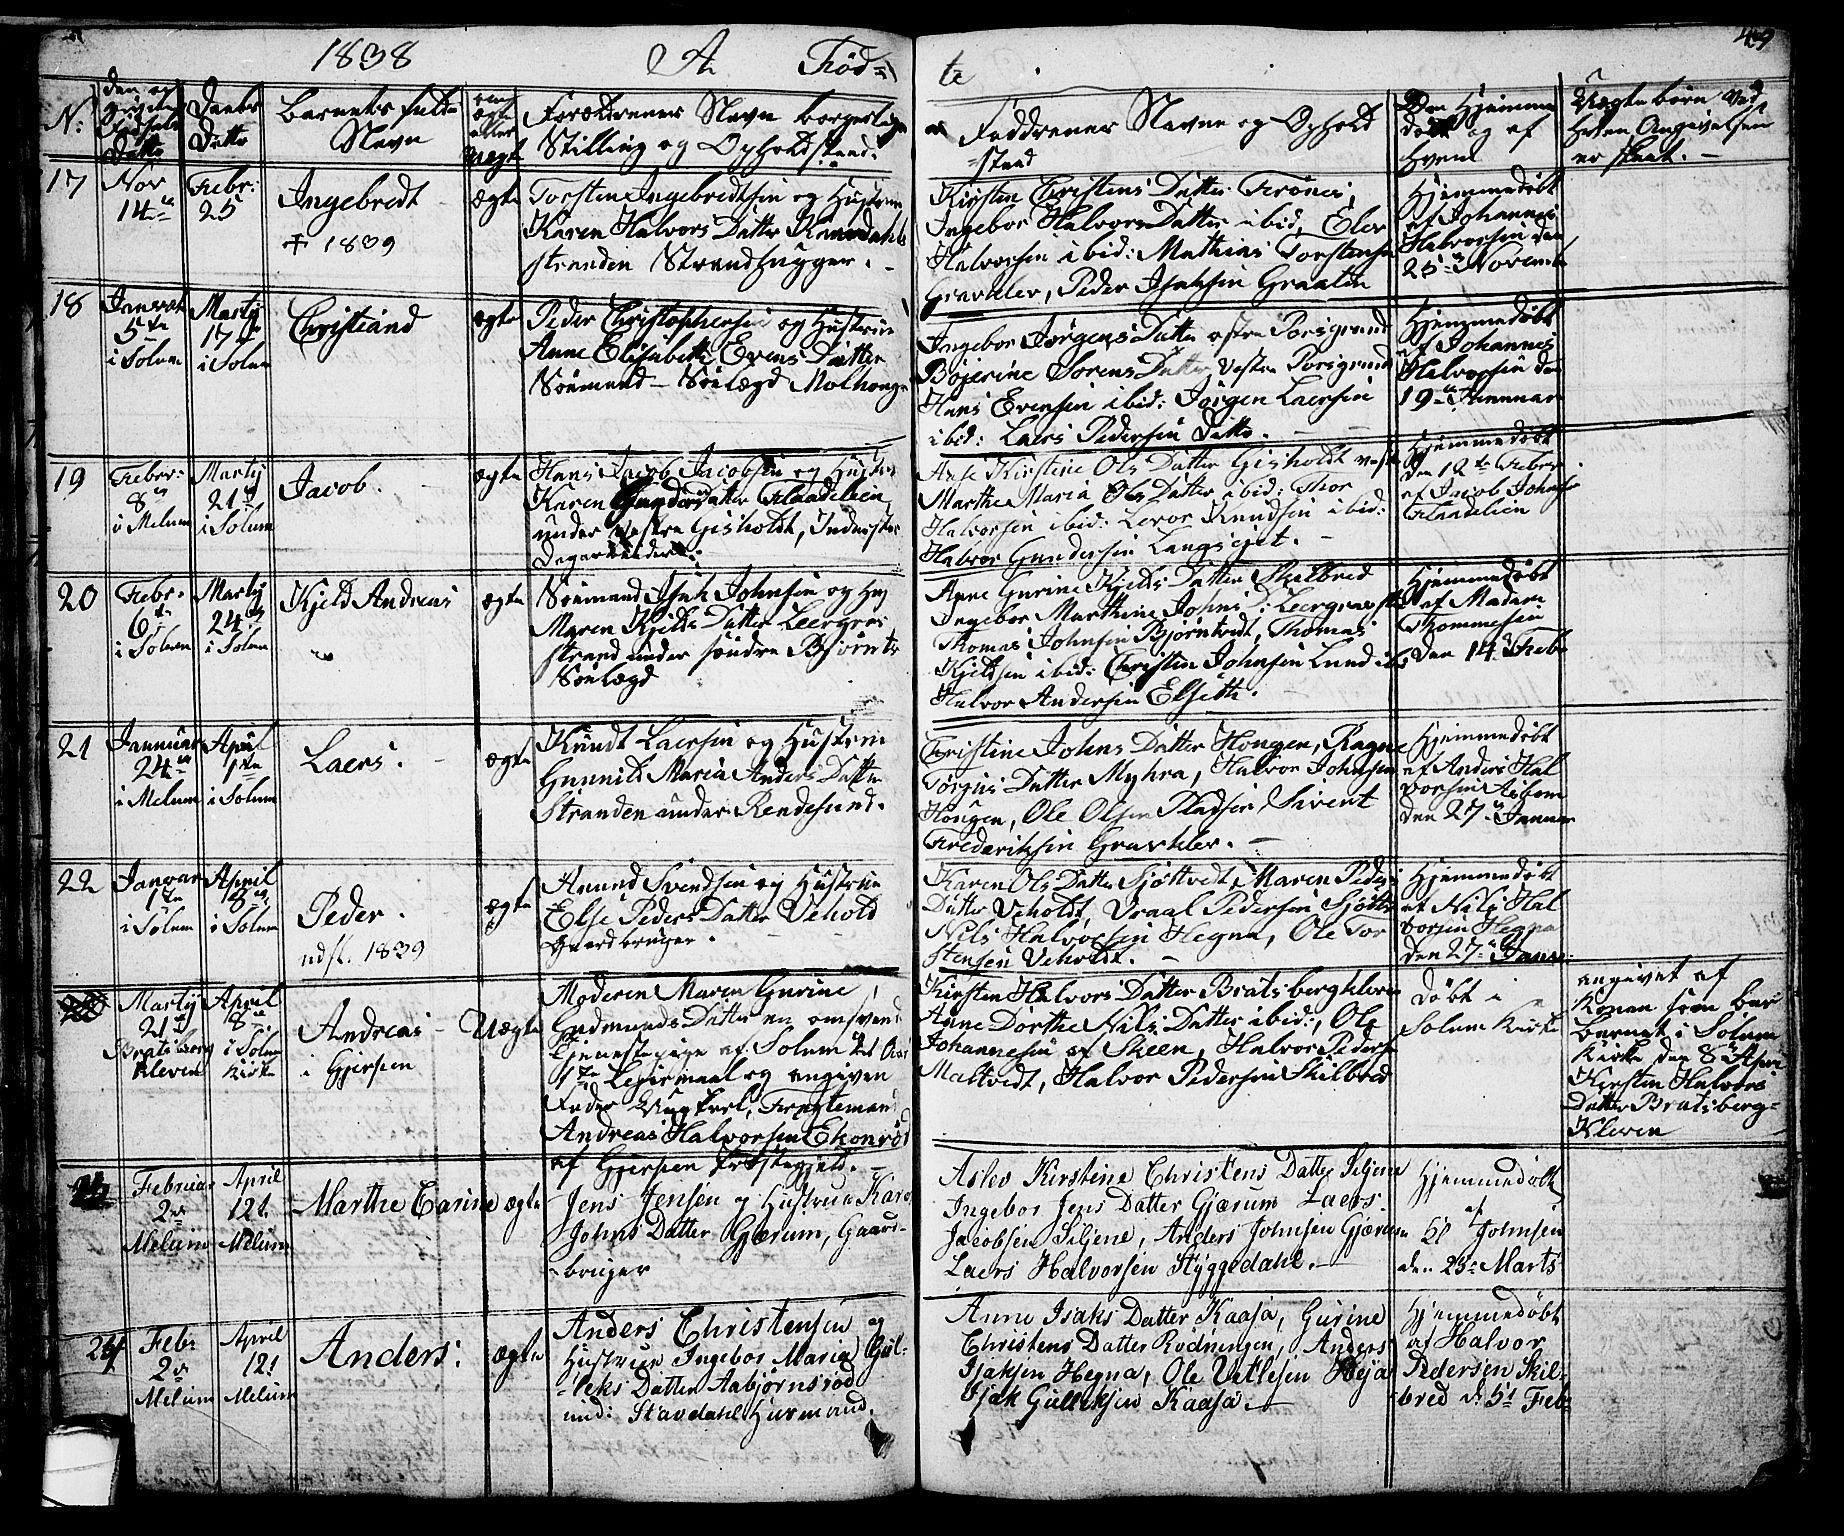 1838 A. Fød-
te
49
N:
Fødsels
Datto
Daabs
Datto
Barnets fulde
Navn
ægte
eller
uægte
Forældrenes Navn borgerlige
Stilling og Opholdstæd.
Faddrenes Navne og Ophold
stæd
Hjemme
døbt og af
hvem
Uægte børn ved
hvem Angivelsen
er skeet. -
17
Nov
14de
Febr:
25
Ingebredt
✝ 1839
ægte
Torsten Ingebredtsen og Hustrue
Karen Halvors Datter
stranden Strandhugger. -
Kirsten Cristens Datter Frönes,
Ingebor Halvors Datter ibid, Elev
Halvorsen ibid: Mathias Torstensen
Gravkler, Peder Isaksen Graaten
Hjemmedøbt
af Johannes
Halvorsen den
25de Novembr
18
Januar
5te
i Solum
Martj
17de
i Solum
Christiand
ægte
Peder Christophersen og Hustrue
Anne Elisabeth Evens Datter
Sømand - Sölægd Molhougen
Ingebor Jørgens Datter østre Porsgrund
Bojerine Sørens Datter Vestre Porsgrund
Hans Evensen ibid: Jørgen Laersen
ibid: Laers Pedersen Ditto. -
Hjemmedøbt
af Johannes
Halvorsen den
19de Januar
19
Febr:
8de
i Melum
Martj
21de
i Solum
Jacob.
ægte
Hans Jacob Jacobsen og Hustrue
Karen Gunders Datter Flaadelien
under vestre Gisholdt, Inderster
Dagarbeider.
Anne Kirstine Ols Datter Gisholdt vestre
Marthe Maria Ols Datter ibid: Thor
Halvorsen ibid: Levor Knudsen ibid:
Halvor Gundersen Langsget. -
Hjemmedøbt
den 12te Febr
af Jacob Johns
Flaadelien
20
Febr.
6te
i Solum
Martj
24de
i Solum
Kjeld Andreas
ægte
Sömand Isak Johnsen og Hus
Maren Kjelds Datter Leergrav
strand under søndre Bjørntv
Sölægd
Anne Gurine Kjelds Datter Skilbred
Ingebor Marthine Johns D: Leergravstr
Thomas Johnsen Bjørntvedt, Thomas
Kjeldsen ibid: Christen Johnsen Lund ibi
Halvor Andersen Elseth.
Hjemmedøbt
af Madam
Thommesen
den 14de Febr
21
Januar
24de
i Melum
April
1te
i Solum
Laers.
ægte
Knudt Laersen og Hustrue
Gunnild Maria Anders Datter
Stranden under Rendesund.
Cristine Johns Datter Hougen, Ragne
Torgus Datter Myhra, Halvor Johnsen
Hougen, Ole Olsen Pladsen Sivert
Frederiksen Gravkler. -
Hjemmedøbt
af Anders Hal
vorsen Asbom
den 27de Januar
22
Januar
17de
i Solum
April
8de
i Solum
Peder.
uds. 1839
ægte
Anund Svendsen og Hustrue
Else Peders Datter Veholdt
Gaardbruger.
Karen Ols Datter Sjøttvedt, Maren Peders
Datter Veholdt, Vraal Pedersen Sjøttv
Nils Halvorsen Hegna, Ole Tor
stensen Veholdt. -
Hjemmedøbt
af Nils Hal
vorsen Hegna
den 27de Janu:
Martj
21de
Bratsberg
Kleven
April
8de
i Solum
Kirke
Andreas
i Gjerpen
Uægte
Moderen Maren Gurine
Gudmunds Datter en omsvend
Tjenestepige af Solum
1te Leiermaal og angiven
Fader Ungkarl,
Andreas Halvorsen Ekonrød
af Gjerpen Præstegjeld. -
Kirsten Halvors Datter Bratsbergkleven
Anne Dorthe Nils Datter ibid:, Ole
Johannesen af Skeen, Halvor Peders
Maltvedt, Halvor Pedersen Skilbred
Døbt i
Solum Kirke
angivet af
Konen som bar
barnet i Solum
Kirke den 8de Apri
Kirsten Halvors
Datter Bratsberg-
Kleven
Februar
2de
Melum
April
12t
Melum
Marthe Carine
ægte
Jens Jensen og Hustrue Kare
Johns Datter Gjærum, Gaard-
bruger
Aslev Kirstine Christens Datter Siljene
Ingebor Jens Datter Gjærum Laers
Jacobsen Siljene, Anders Johnsen Gjærum
Laers Halvorsen Hyggedahl. -
Hjemmedøbt
af
Johnsen
den 23de Marts
24
Feb:
2de
Melum
April
12t
Melum
Anders:
ægte
Anders Christensen og
Hustrue Ingebor Maria Gul-
leks Datter Aabjørnsrød
und: Stavdahl Huusmand.
Anne Isaks Datter Kaasa, Gurine
Christens Datter Rødningen, Anders
Isaksen Hegna, Ole Vetlesen Heja
Isak Gulleksen Kaasa. -
Hjemmedøbt
af Halvor
Pedersen Skil-
bred d: 5t Feb: